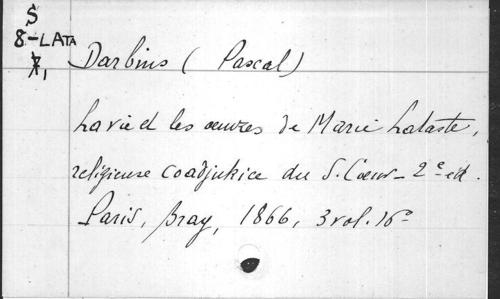 S
8-LATA
1
Darbins ( Pascal)
La vie et les œuvres de Marie Lataste,
religieuse coadjutrice du S. Cœur - 2e éd.
Paris, Bray, 1866, 3 vol. 16°